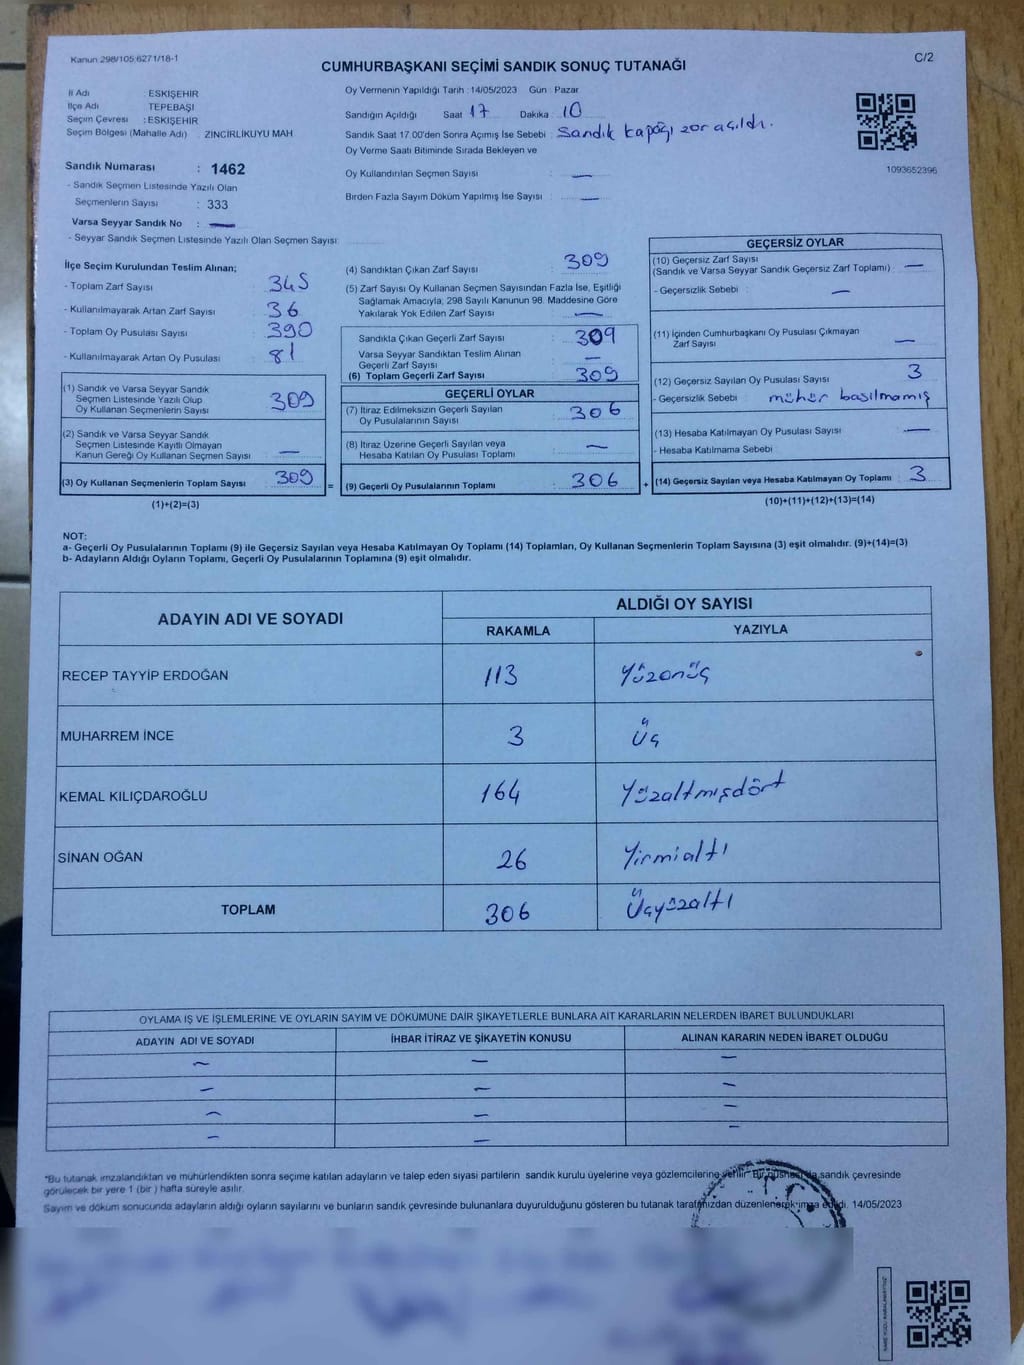 Kanun 298/105 6271/18-1
C/2
CUMHURBAŞKANI SEÇİMİ SANDIK SONUÇ TUTANAĞI
İl Adı : ESKİŞEHİR
İlçe Adı : TEPEBAŞI
Seçim Çevresi : ESKİŞEHİR
Seçim Bölgesi (Mahalle Adı) : ZİNCİRLİKUYU MAH
Sandık Numarası : 1462
- Sandık Seçmen Listesinde Yazılı Olan
Seçmenlerin Sayısı : 333
Varsa Seyyar Sandık No : —
- Seyyar Sandık Seçmen Listesinde Yazılı Olan Seçmen Sayısı:
Oy Vermenin Yapıldığı Tarih : 14/05/2023 Gün : Pazar
Sandığın Açıldığı Saat 17 Dakika : 10
Sandık Saat 17.00'den Sonra Açımış İse Sebebi : Sandık kapağı zor açıldı.
Oy Verme Saati Bitiminde Sırada Bekleyen ve
Oy Kullandırılan Seçmen Sayısı : —
Birden Fazla Sayım Döküm Yapılmış İse Sayısı : —
1093652396
İlçe Seçim Kurulundan Teslim Alınan;
- Toplam Zarf Sayısı : 345
- Kullanılmayarak Artan Zarf Sayısı : 36
- Toplam Oy Pusulası Sayısı : 390
- Kullanılmayarak Artan Oy Pusulası : 81
(1) Sandık ve Varsa Seyyar Sandık
Seçmen Listesinde Yazılı Olup
Oy Kullanan Seçmenlerin Sayısı : 309
(2) Sandık ve Varsa Seyyar Sandık
Seçmen Listesinde Kayıtlı Olmayan
Kanun Gereği Oy Kullanan Seçmen Sayısı : —
(3) Oy Kullanan Seçmenlerin Toplam Sayısı : 309 =
(1)+(2)=(3)
(4) Sandıktan Çıkan Zarf Sayısı : 309
(5) Zarf Sayısı Oy Kullanan Seçmen Sayısından Fazla İse, Eşitliği
Sağlamak Amacıyla; 298 Sayılı Kanunun 98. Maddesine Göre
Yakılarak Yok Edilen Zarf Sayısı : —
Sandıkta Çıkan Geçerli Zarf Sayısı : 309
Varsa Seyyar Sandıktan Teslim Alınan
Geçerli Zarf Sayısı : —
(6) Toplam Geçerli Zarf Sayısı : 309
GEÇERLİ OYLAR
(7) İtiraz Edilmeksizin Geçerli Sayılan
Oy Pusulalarının Sayısı : 306
(8) İtiraz Üzerine Geçerli Sayılan veya
Hesaba Katılan Oy Pusulası Toplamı : —
(9) Geçerli Oy Pusulalarının Toplamı : 306 +
GEÇERSİZ OYLAR
(10) Geçersiz Zarf Sayısı
(Sandık ve Varsa Seyyar Sandık Geçersiz Zarf Toplamı) : —
- Geçersizlik Sebebi : —
(11) İçinden Cumhurbaşkanı Oy Pusulası Çıkmayan
Zarf Sayısı : —
(12) Geçersiz Sayılan Oy Pusulası Sayısı : 3
- Geçersizlik Sebebi : mühür basılmamış
(13) Hesaba Katılmayan Oy Pusulası Sayısı : —
- Hesaba Katılmama Sebebi :
(14) Geçersiz Sayılan veya Hesaba Katılmayan Oy Toplamı : 3
(10)+(11)+(12)+(13)=(14)
NOT:
a- Geçerli Oy Pusulalarının Toplamı (9) ile Geçersiz Sayılan veya Hesaba Katılmayan Oy Toplamı (14) Toplamları, Oy Kullanan Seçmenlerin Toplam Sayısına (3) eşit olmalıdır. (9)+(14)=(3)
b- Adayların Aldığı Oyların Toplamı, Geçerli Oy Pusulalarının Toplamına (9) eşit olmalıdır.
ADAYIN ADI VE SOYADI
ALDIĞI OY SAYISI
RAKAMLA YAZIYLA
RECEP TAYYİP ERDOĞAN 113 Yüzonüç
MUHARREM İNCE 3 Üç
KEMAL KILIÇDAROĞLU 164 Yüzaltmışdört
SİNAN OĞAN 26 Yirmialtı
TOPLAM 306 Üçyüzaltı
OYLAMA İŞ VE İŞLEMLERİNE VE OYLARIN SAYIM VE DÖKÜMÜNE DAİR ŞİKAYETLERLE BUNLARA AİT KARARLARIN NELERDEN İBARET BULUNDUKLARI
ADAYIN ADI VE SOYADI İHBAR İTİRAZ VE ŞİKAYETİN KONUSU ALINAN KARARIN NEDEN İBARET OLDUĞU
— — —
— — —
— — —
— — —
*Bu tutanak imzalandıktan ve mühürlendikten sonra seçime katılan adayların ve talep eden siyasi partilerin sandık kurulu üyelerine veya gözlemcilerine verilir. Bir nüshası da sandık çevresinde
görülecek bir yere 1 (bir) hafta süreyle asılır.
Sayım ve döküm sonucunda adayların aldığı oyların sayılarını ve bunların sandık çevresinde bulunanlara duyurulduğunu gösteren bu tutanak tarafımızdan düzenlenerek imza edildi. 14/05/2023